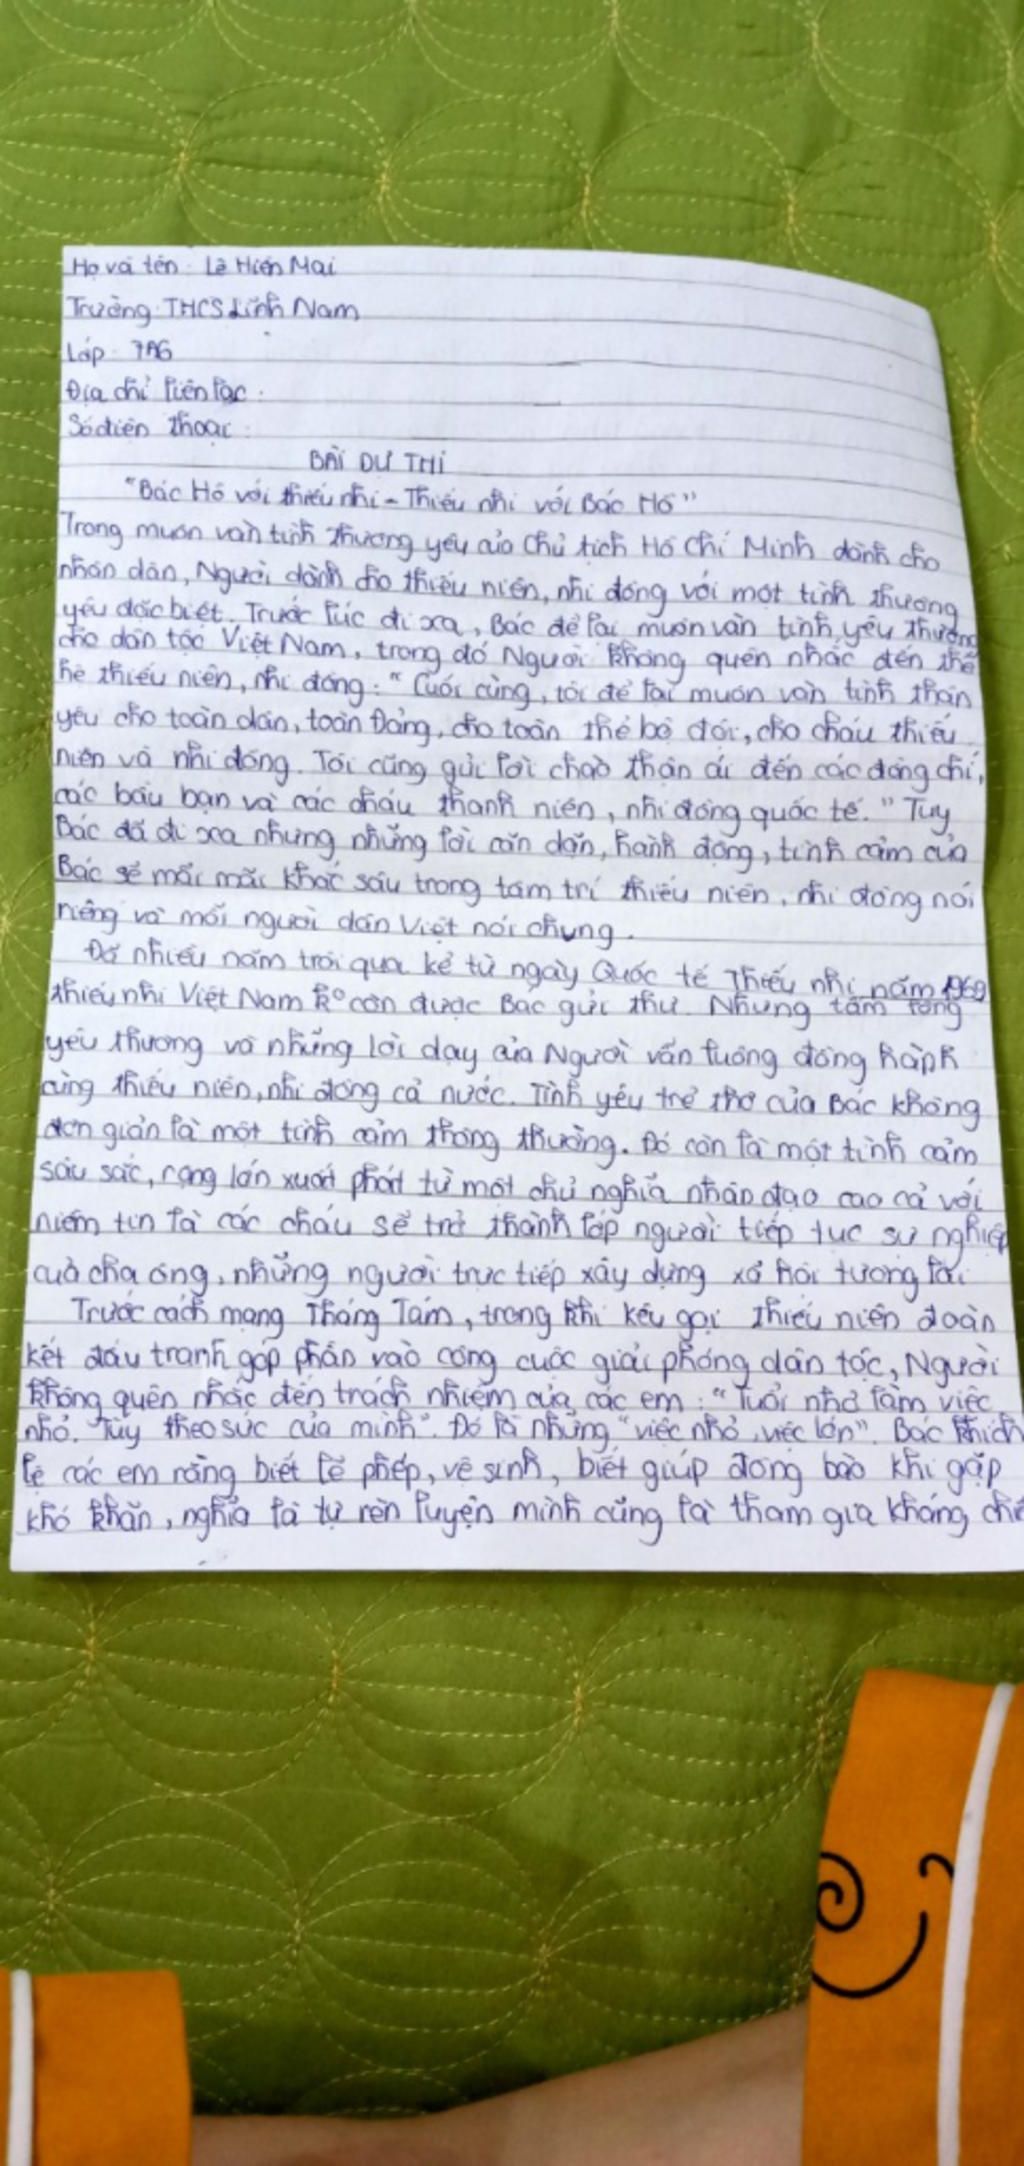 Họ và tên: Lê Hiền Mai
Trường: THCS Lĩnh Nam
Lớp: 7A6
Địa chỉ liên lạc:
Số điện thoại:
BÀI DỰ THI
"Bác Hồ với thiếu nhi - Thiếu nhi với Bác Hồ"
Trong muôn vàn tình thương yêu của Chủ tịch Hồ Chí Minh dành cho
nhân dân, Người dành cho thiếu niên, nhi đồng với một tình thương
yêu đặc biệt. Trước lúc đi xa, Bác để lại muôn vàn tình yêu thương
cho dân tộc Việt Nam, trong đó Người không quên nhắc đến thế
hệ thiếu niên, nhi đồng: "Cuối cùng, tôi để lại muôn vàn tình thân
yêu cho toàn dân, toàn Đảng, cho toàn thể bộ đội, cho cháu thiếu
niên và nhi đồng. Tôi cũng gửi lời chào thân ái đến các đồng chí,
các bầu bạn và các cháu thanh niên, nhi đồng quốc tế." Tuy
Bác đã đi xa nhưng những lời căn dặn, hành động, tình cảm của
Bác sẽ mãi mãi khắc sâu trong tâm trí thiếu niên, nhi đồng nói
riêng và mỗi người dân Việt nói chung.
Đã nhiều năm trôi qua kể từ ngày Quốc tế Thiếu nhi năm 1969
thiếu nhi Việt Nam k° còn được Bác gửi thư. Nhưng tấm lòng
yêu thương và những lời dạy của Người vẫn luông đồng hành
cùng thiếu niên, nhi đồng cả nước. Tình yêu trẻ thơ của Bác không
đơn giản là một tình cảm thông thường. Đó còn là một tình cảm
sâu sắc, rộng lớn xuất phát từ một chủ nghĩa nhân đạo cao cả với
niềm tin là các cháu sẽ trở thành lớp người tiếp tục sự nghiệp
của cha ông, những người trực tiếp xây dựng xã hội tương lai.
Trước cách mạng Tháng Tám, trong khi kêu gọi thiếu niên đoàn
kết đấu tranh góp phần vào công cuộc giải phóng dân tộc, Người
không quên nhắc đến trách nhiệm của các em: "Tuổi nhỏ làm việc
nhỏ. Tùy theo sức của mình". Đó là những "việc nhỏ, việc lớn". Bác khích
lệ các em rằng biết lễ phép, vệ sinh, biết giúp đồng bào khi gặp
khó khăn, nghĩa là tự rèn luyện mình cũng là tham gia kháng